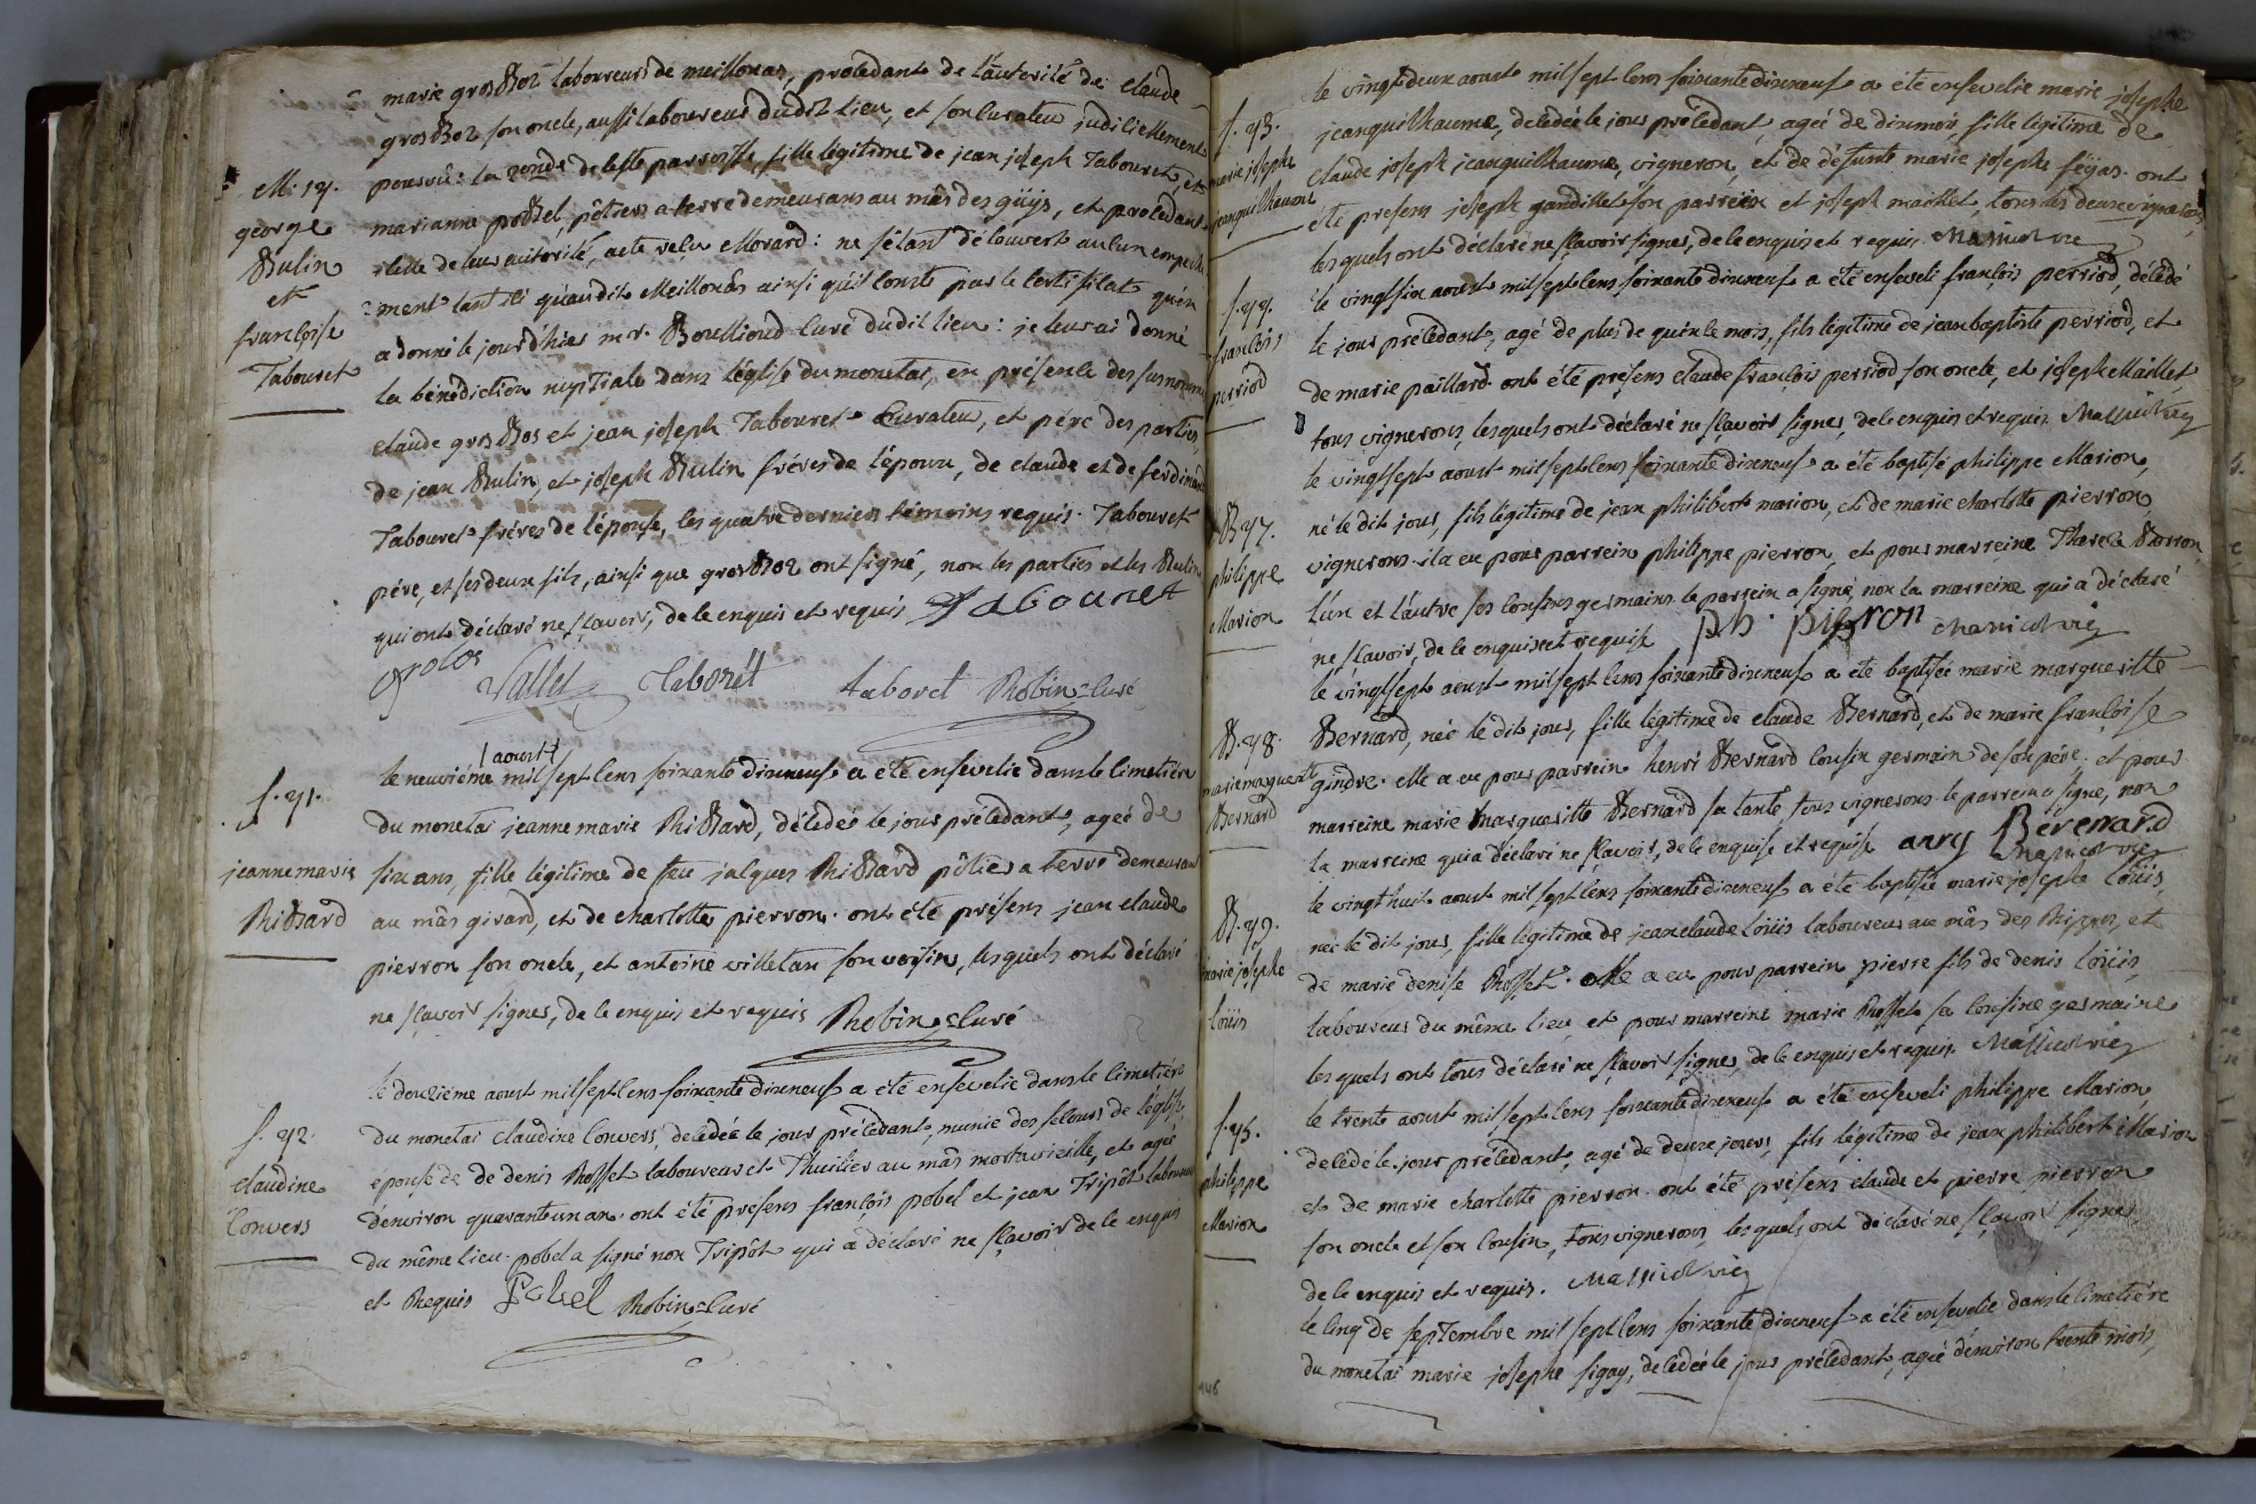 marie grosBoz laboureurs de meillonas, procedant de l'autorité de claude
grosBoz son oncle, aussi laboureur dudit lieu, et son curateur judiciellement
M. 14.
george
Bulin
et
françoise
Tabouret
pourvû: la 2onde de cette parroisse, fille légitime de jean joseph Tabouret, et
marianne poBel, pôtiers a terre demeurans au mâs des guys, et procedant
celle de leur autorité, acte reçu Morard: ne s'étant découvert aulcun empeche
:ment tant ici qu'audit Meillonas ainsi qu'il conste par le certificat qu'en
a donné le jour d'hier mr. Boullioud curé dudit lieu: je leur ai donné
la bénédiction nuptiale dans l'église du monetai, en présence des susnommés
claude grosBos et jean joseph Tabouret Curateur, et père des parties,
de jean Bulin, et joseph Bulin fréres de l'époux, de claude et de ferdinand
Tabouret fréres de l'épouse, les quatre derniers témoins requis. Tabouret
père, et ses deux fils, ainsi que grosBoz ont signé, non les parties et les Bulin
qui ont déclaré ne sçavoir, de ce enquis et requis Tabouret
grobos Vallet taborét taboret Robin curé
f. 41.
jeanne marie
RiBard
le neuviéme aoust mil sept cens soixante dixneuf a été ensevelie dans le cimetiére
du monetai jeanne marie RiBard, décédée le jour précédant, ageé de
six ans, fille légitime de feu jacques RiBard pôtier a terre demeurant
au mâs girard, et de charlotte pierron. ont été présens jean claude
pierron son oncle, et antoine villetan son voisin, lesquels ont déclaré
ne sçavoir signer, de ce enquis et requis Robin curé
f. 42.
claudine
Convers
le douzieme aoust mil sept cens soixante dixneuf a été ensevelie dans le cimetiére
du monetai claudine Convers, decédée le jour précédant, munie des secours de l'église,
épouse de de denis Rosset laboureur et Thuilier au mâs mortuvieille, et ageé
d'environ quarante un an. ont été présens françois pobel et jean Tripôt laboureurs
du même lieu. pobel a signé non Tripôt qui a déclaré ne sçavoir de ce enquis
et Requis Pobel Robin curé
f. 43.
marie josephe
jeanguilhaume
le vingt deux aoust mil sept cens soixante dixneuf a été ensevelie marie josephe
jeanguilhaume, decédée le jour précédant, ageé de dix mois, fille légitime de
claude joseph jeanguilhaume, vigneron, et de défunte marie josephe féyas. ont
été presens joseph gandillet son parrein et joseph maillet, tous les deux vignerons,
lesquels ont déclaré ne sçavoir signer, de ce enquis et requis.
f. 44.
françois
perriod
le vingt six aoust mil sept cens soixante dixneuf a été enseveli françois perriod, décédé
le jour précédant, agé de plus de quinze mois, fils légitime de jean baptiste perriod, et
de marie paillard. ont été présens claude françois perriod son oncle, et joseph Maillet
tous vignerons, lesquels ont déclaré ne sçavoir signer, de ce enquis et requis.
B. 47.
philippe
Marion
le vingt sept aoust mil sept cens soixante dixneuf a été baptisé philippe Marion,
né le dit jour, fils légitime de jean philibert marion, et de marie charlotte pierron,
vignerons. il a eu pour parrein philippe pierron, et pour marreine Therese Borron,
l'un et l'autre ses cousins germains. le parrein a signé, non la marreine qui a déclaré
ne sçavoir, de ce enquise et requise ph. pierron
B. 48.
marie marguerite
Bernard
le vingt sept aoust mil sept cens soixante dixneuf a été baptisée marie margueritte
Bernard, née le dit jour, fille légitime de claude Bernard, et de marie françoise
gindre. elle a eu pour parrein henri Bernard cousin germain de son père, et pour
marreine marie Margueritte Bernard sa tante, tous vignerons. le parrein a signé, non
la marreine qui a déclaré ne sçavoir, de ce enquise et requise anry Berenard
B. 49.
marie josephe
loüis
le vingt huit aoust mil sept cens soixante dixneuf a été baptisée marie josephe loüis,
née le dit jour, fille légitime de jean claude loüis laboureur au mâs des Rippes, et
de marie denise Rosset. elle a eu pour parrein pierre fils de denis loüis,
laboureur du même lieu, et pour marreine marie Rosset sa cousine germaine
lesquels ont tous déclaré ne sçavoir signer, de ce enquis et requis.
f. 45.
philippe
Marion
le trente aoust mil sept cens soixante dixneuf a été enseveli philippe Marion,
decédé le jour précédant, agé de deux jours, fils légitime de jean philibert Marion
et de marie charlotte pierron. ont été présens claude et pierre pierron
son oncle et son cousin, tous vignerons, lesquels ont déclaré ne sçavoir signer,
de ce enquis et requis.
le cinq de septembre mil sept cens soixante dixneuf a été ensevelie dans le cimetiére
du monetai marie josephe figay, decédée le jour précédant, ageé d'environ trente mois,